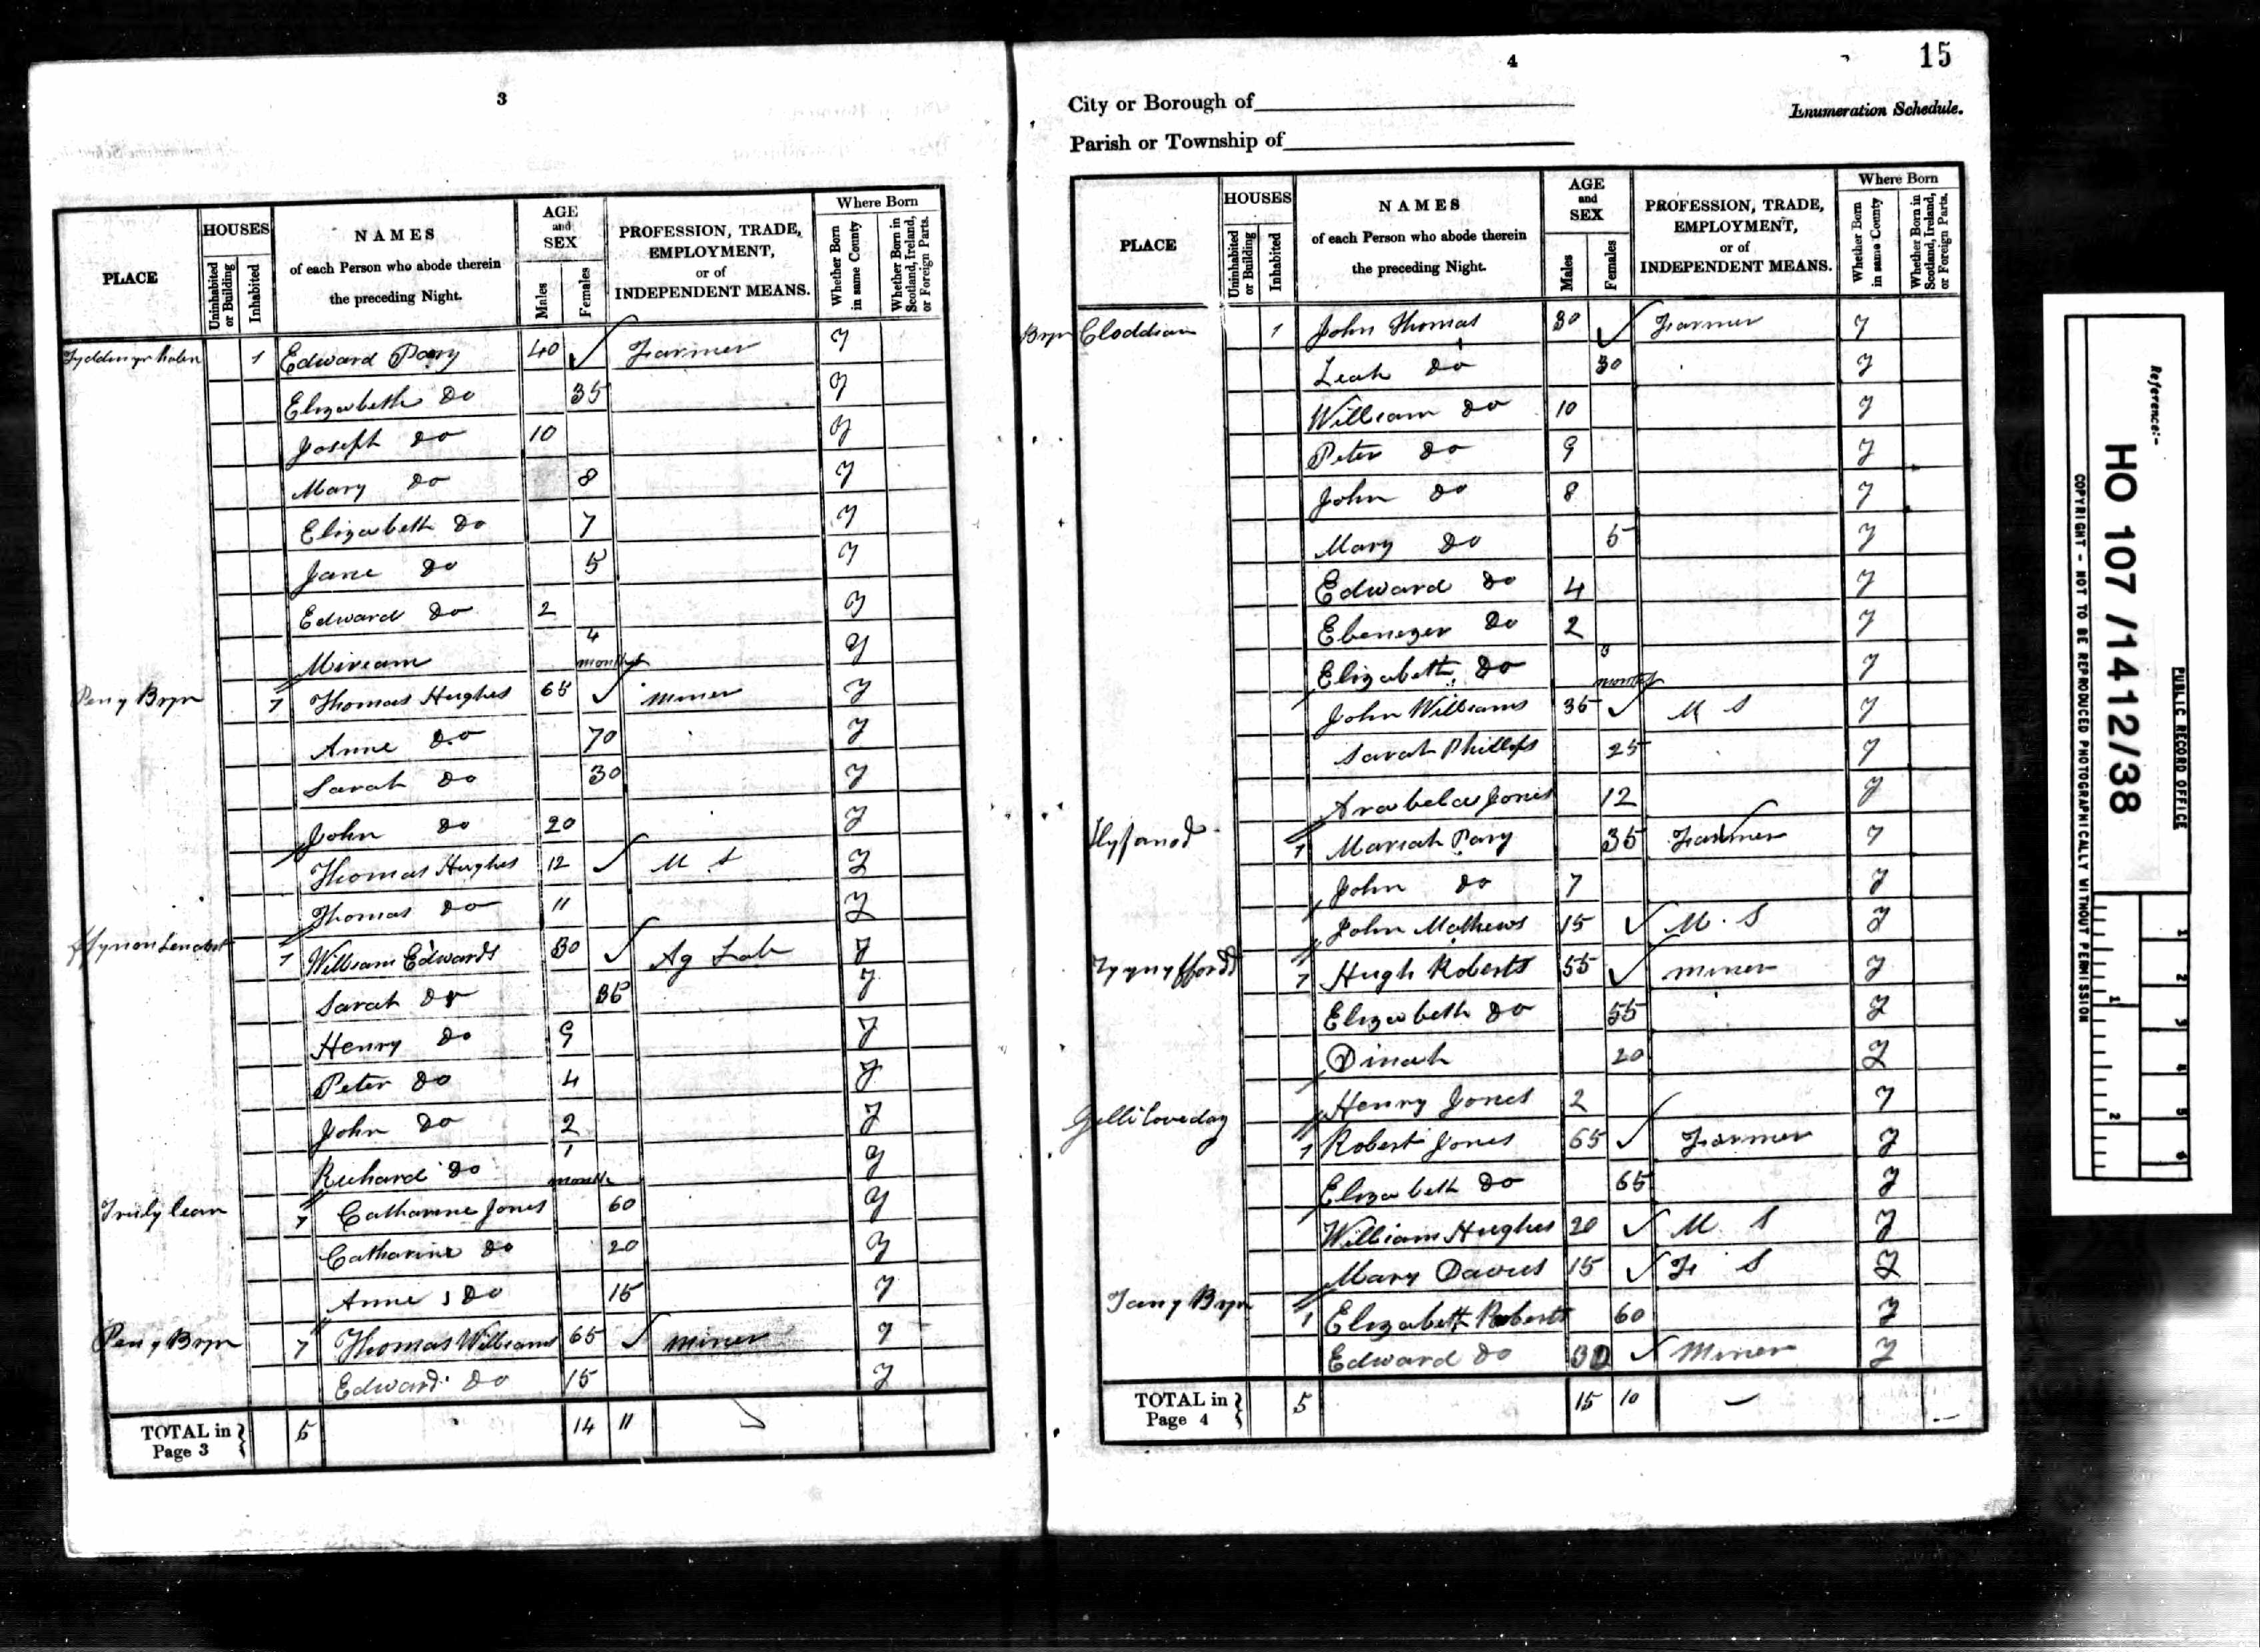 3
PLACE
HOUSES
Uninhabited or Building
Inhabited
NAMES
of each Person who abode therein
the preceding Night.
AGE
and
SEX
Males
Females
PROFESSION, TRADE,
EMPLOYMENT,
or of
INDEPENDENT MEANS.
Where Born
Whether Born in same County
Whether Born in Scotland, Ireland, or Foreign Parts.
1 Edward Parry 40 Farmer Y
Elizabeth Do 35 Y
Joseph Do 10 Y
Mary Do 8 Y
Elizabeth Do 7 Y
Jane Do 5 Y
Edward Do 2 Y
Miream 4 months Y
Pen y Bryn 1 Thomas Hughes 65 Miner Y
Anne Do 70 Y
Sarah Do 30 Y
John Do 20 Y
Thomas Hughes 12 M S Y
Thomas Do 11 Y
1 William Edwards 30 Ag Lab Y
Sarah Do 35 Y
Henry Do 9 Y
Peter Do 4 Y
John Do 2 Y
Richard Do 1 month Y
1 Catharine Jones 60 Y
Catharine Do 20 Y
Anne Do 15 Y
Pen y Bryn 1 Thomas Williams 65 Miner Y
Edward Do 15 Y
TOTAL in Page 3 5 14 11
4
15
City or Borough of
Enumeration Schedule.
Parish or Township of
PLACE
HOUSES
Uninhabited or Building
Inhabited
NAMES
of each Person who abode therein
the preceding Night.
AGE
and
SEX
Males
Females
PROFESSION, TRADE,
EMPLOYMENT,
or of
INDEPENDENT MEANS.
Where Born
Whether Born in same County
Whether Born in Scotland, Ireland, or Foreign Parts.
Bryn Cloddian 1 John Thomas 30 Farmer Y
Leah Do 30 Y
William Do 10 Y
Peter Do 9 Y
John Do 8 Y
Mary Do 5 Y
Edward Do 4 Y
Ebenezer Do 2 Y
Elizabeth Do months Y
John Williams 35 M S Y
Sarah Phillips 25 Y
Arabela Jones 12 Y
1 Mariah Parry 35 Farmer Y
John Do 7 Y
John Mathews 15 M S Y
Ty yn y ffordd 1 Hugh Roberts 55 Miner Y
Elizabeth Do 55 Y
Dinah 20 Y
Henry Jones 2 Y
Gelli Loveday 1 Robert Jones 65 Farmer Y
Elizabeth Do 65 Y
William Hughes 20 M S Y
Mary Davies 15 F S Y
Tan y Bryn 1 Elizabeth Roberts 60 Y
Edward Do 30 Miner Y
TOTAL in Page 4 5 15 10
Reference:-
HO 107 / 1412/38
PUBLIC RECORD OFFICE
COPYRIGHT - NOT TO BE REPRODUCED PHOTOGRAPHICALLY WITHOUT PERMISSION
1 2 3 4 5 6
1 2